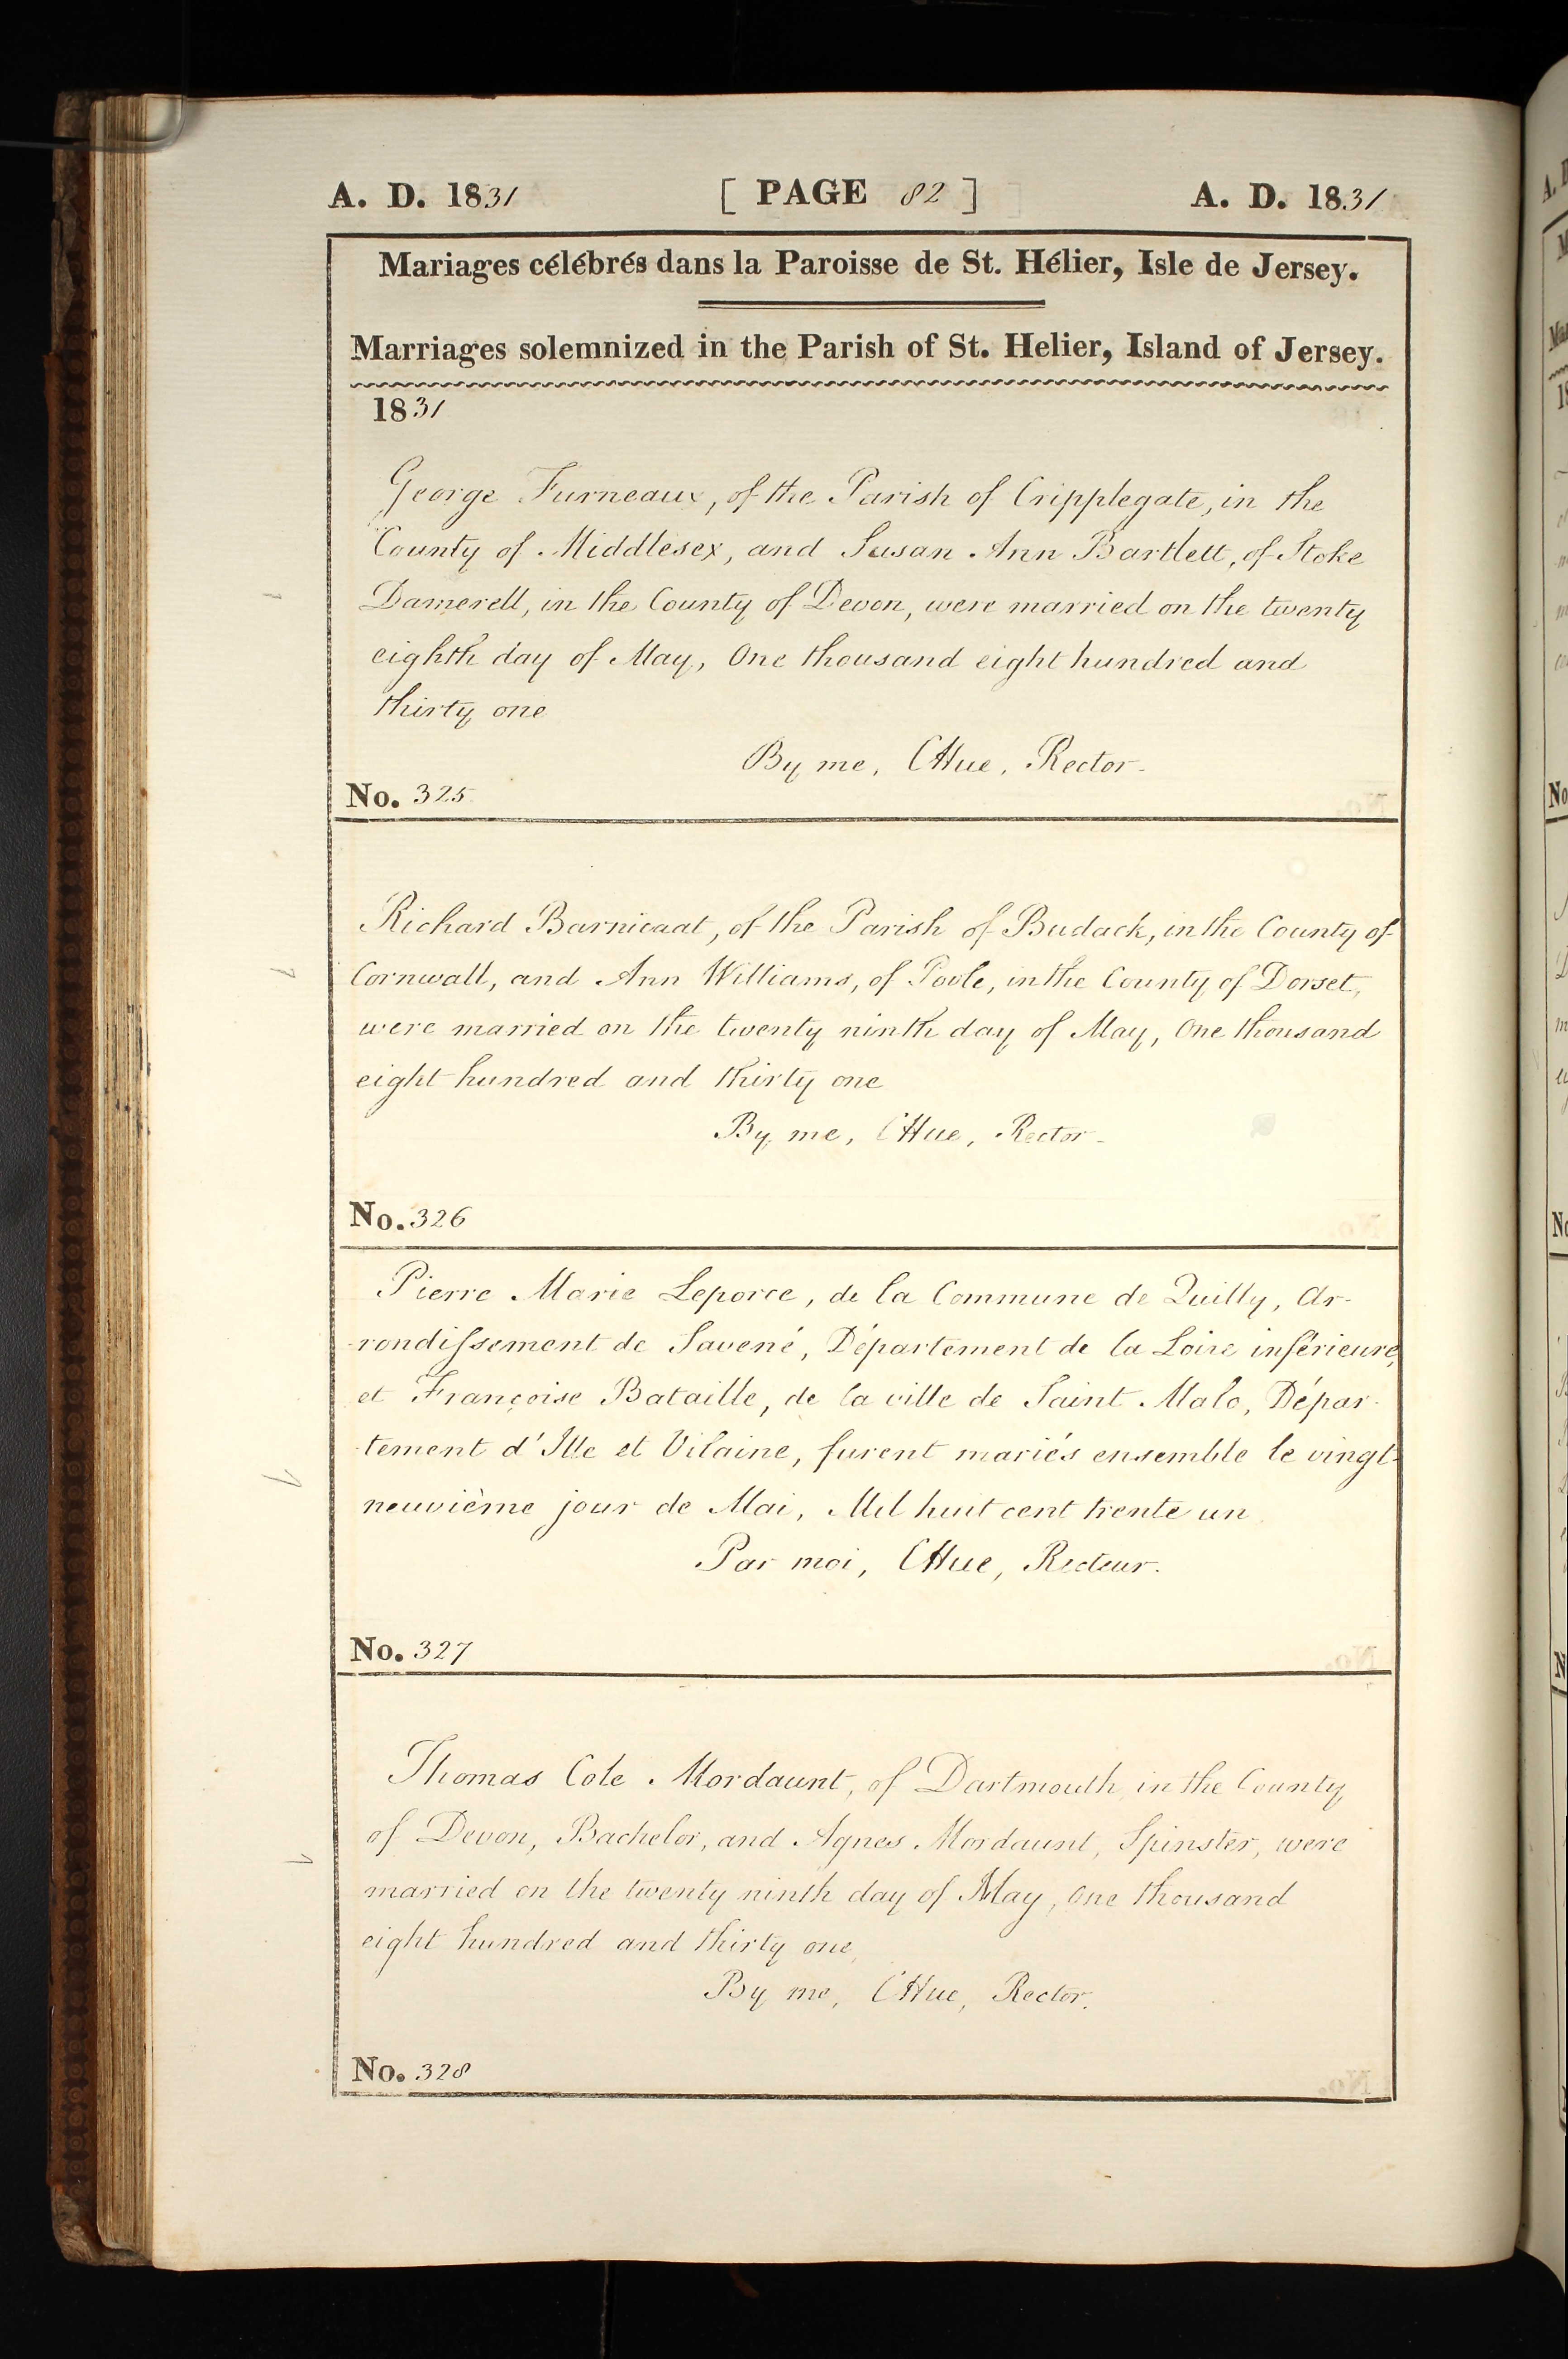 A. D. 1831 [ PAGE 82 ] A. D. 1831
Mariages célébrés dans la Paroisse de St. Hélier, Isle de Jersey.
Marriages solemnized in the Parish of St. Helier, Island of Jersey.
1831
George Furneaux, of the Parish of Cripplegate, in the
County of Middlesex, and Susan Ann Bartlett, of Stoke
Damerell, in the County of Devon, were married on the twenty
eighth day of May, One thousand eight hundred and
thirty one
By me, CHue, Rector.
No. 325
Richard Barnicaat, of the Parish of Budack, in the County of
Cornwall, and Ann Williams, of Poole, in the County of Dorset,
were married on the twenty ninth day of May, One thousand
eight hundred and thirty one
By me, CHue, Rector.
No. 326
Pierre Marie Leporce, de la Commune de Quilly, Ar-
rondissement de Savené, Département de la Loire inférieure,
et Françoise Bataille, de la ville de Saint Malo, Dépar-
tement d'Ille et Vilaine, furent mariés ensemble le vingt-
neuvième jour de Mai, Mil huit cent trente un
Par moi, CHue, Recteur.
No. 327
Thomas Cole Mordaunt, of Dartmouth in the County
of Devon, Bachelor, and Agnes Mordaunt, Spinster, were
married on the twenty ninth day of May, One thousand
eight hundred and thirty one,
By me, CHue, Rector.
No. 328